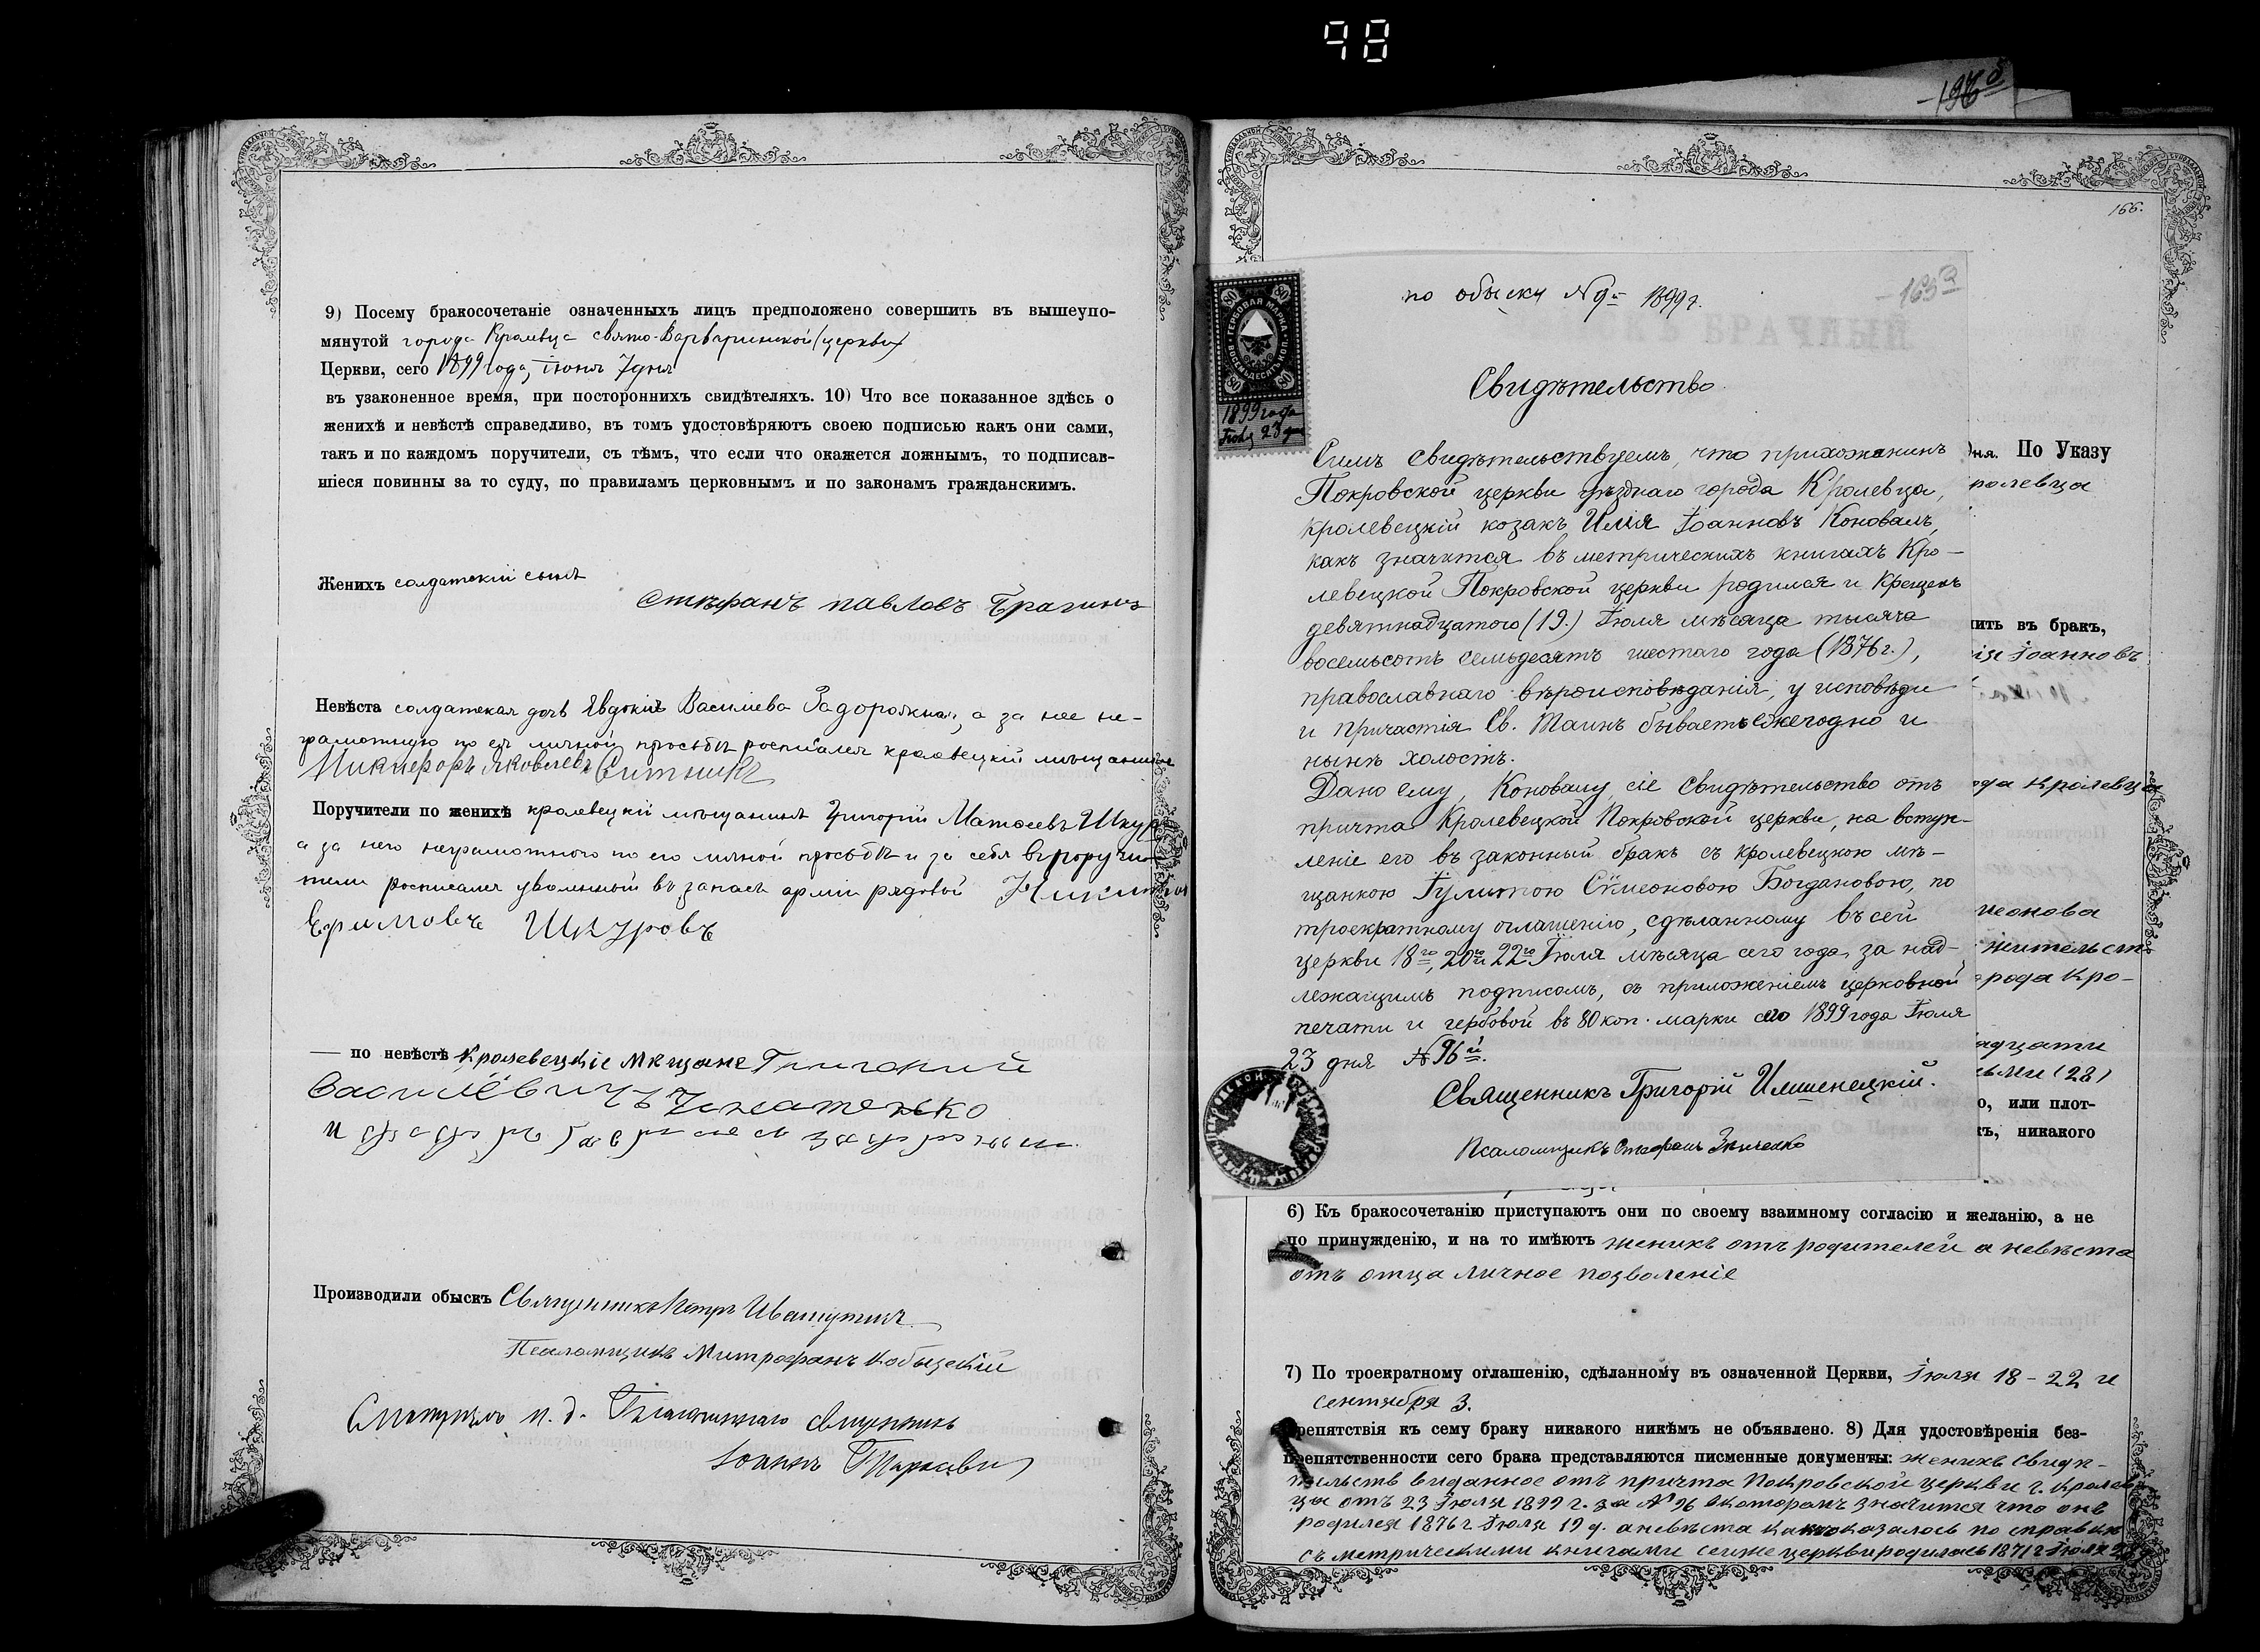 98
196б
9) Посему бракосочетаніе означенныхъ лицъ предположено совершить въ вышеупо-
мянутой города Кролевца свято-Варваринской (церкви)
Церкви, сего 1899 года, іюня 7 дня
въ узаконенное время, при постороннихъ свидѣтеляхъ. 10) Что все показанное здѣсь о
женихѣ и невѣстѣ справедливо, въ томъ удостовѣряютъ своею подписью какъ они сами,
такъ и по каждомъ поручители, съ тѣмъ, что если что окажется ложнымъ, то подписав-
шіеся повинны за то суду, по правиламъ церковнымъ и по законамъ гражданскимъ.
Женихъ солдатскій сынъ
Стефанъ павловъ Брагинъ
Невѣста солдатская дочь Евдокія Василіева Задорожная, а за нее не-
грамотную по ея личной просьбѣ росписался кролевецкій мѣщанинъ
Никифоръ Яковлевъ Ситникъ
Поручители по женихѣ кролевецкій мѣщанинъ Григорій Матѳеевъ Шкур
а за него неграмотного по его личной просьбѣ и за себя въ поручи-
тели росписался уволенный въ запасъ арміи рядовой Никита
Ефимовъ Шкуровъ
— по невѣстѣ Кролевецкіе мѣщане Григорий
Василёвичъ Игнатенко
и
Производили обыскъ Священникъ Петръ Ивашутичъ
Псаломщикъ Митрофанъ Кобыцскій
Смотрѣлъ и. д. Благочиннаго священникъ
Іоаннъ
166.
165а
80 80
ГЕРБОВАЯ МАРКА
ВОСЕМЬДЕСЯТЪ КОП.
80 80
1899 года
Іюля 23 дня
по обыску № 9й 1899 г.
Свидѣтельство.
Симъ свидѣтельствуемъ, что прихожанинъ
Покровской церкви уѣзднаго города Кролевца,
кролевецкій козакъ Илія Іоанновъ Коновалъ,
какъ значится въ метрическихъ книгахъ Кро-
левецкой Покровской церкви родился и крещенъ
девятнадцатого (19.) Іюля мѣсяца тысяча
восемьсотъ семьдесятъ шестаго года (1876 г.),
православнаго вѣроисповѣданія, у исповѣди
и причастія Св. Таинъ бываетъ ежегодно и
нынѣ холостъ.
Дано ему, Коновалу, сіе свидѣтельство отъ
причта Кролевецкой Покровской церкви, на вступ-
леніе его въ законный бракъ съ кролевецкою мѣ-
щанкою Іулитою Сѵмеоновою Богдановою, по
троекратному оглашенію, сдѣланному въ сей
церкви 18го, 20го и 22го Іюля мѣсяца сего года, за над-
лежащимъ подписомъ, съ приложеніемъ церковной
печати и гербовой въ 80 коп. марки сего 1899 года Іюля
23 дня № 96й.
Священникъ Григорій Имшенецкій.
Псаломщикъ Стефанъ Зѣнченко
дня. По Указу
ролевца
ить въ бракъ,
Іоанновъ
ода Кролевца
меонова
жительст
рода Кро-
адцати
ьми (28)
о, или плот-
ъ, никакого
6) Къ бракосочетанію приступаютъ они по своему взаимному согласію и желанію, а не
по принужденію, и на то имѣютъ женихъ отъ родителей а невѣста
отъ отца личное позволеніе
7) По троекратному оглашенію, сдѣланному въ означенной Церкви, Іюля 18 - 22 и
сентября 3.
препятствія къ сему браку никакого никѣмъ не объявлено. 8) Для удостовѣренія без-
препятственности сего брака представляются писменные документы: женихъ свидѣ-
тельств виданное отъ причта Покровской церкви г. Кролев
ца отъ 23 Іюля 1899 г. за № 96 в которомъ значится что онъ
родился 1876 г Іюля 19 д. а невѣста какъ оказалось по справкѣ
съ метрическими книгами сейже церкви родилась 1871 г Іюля